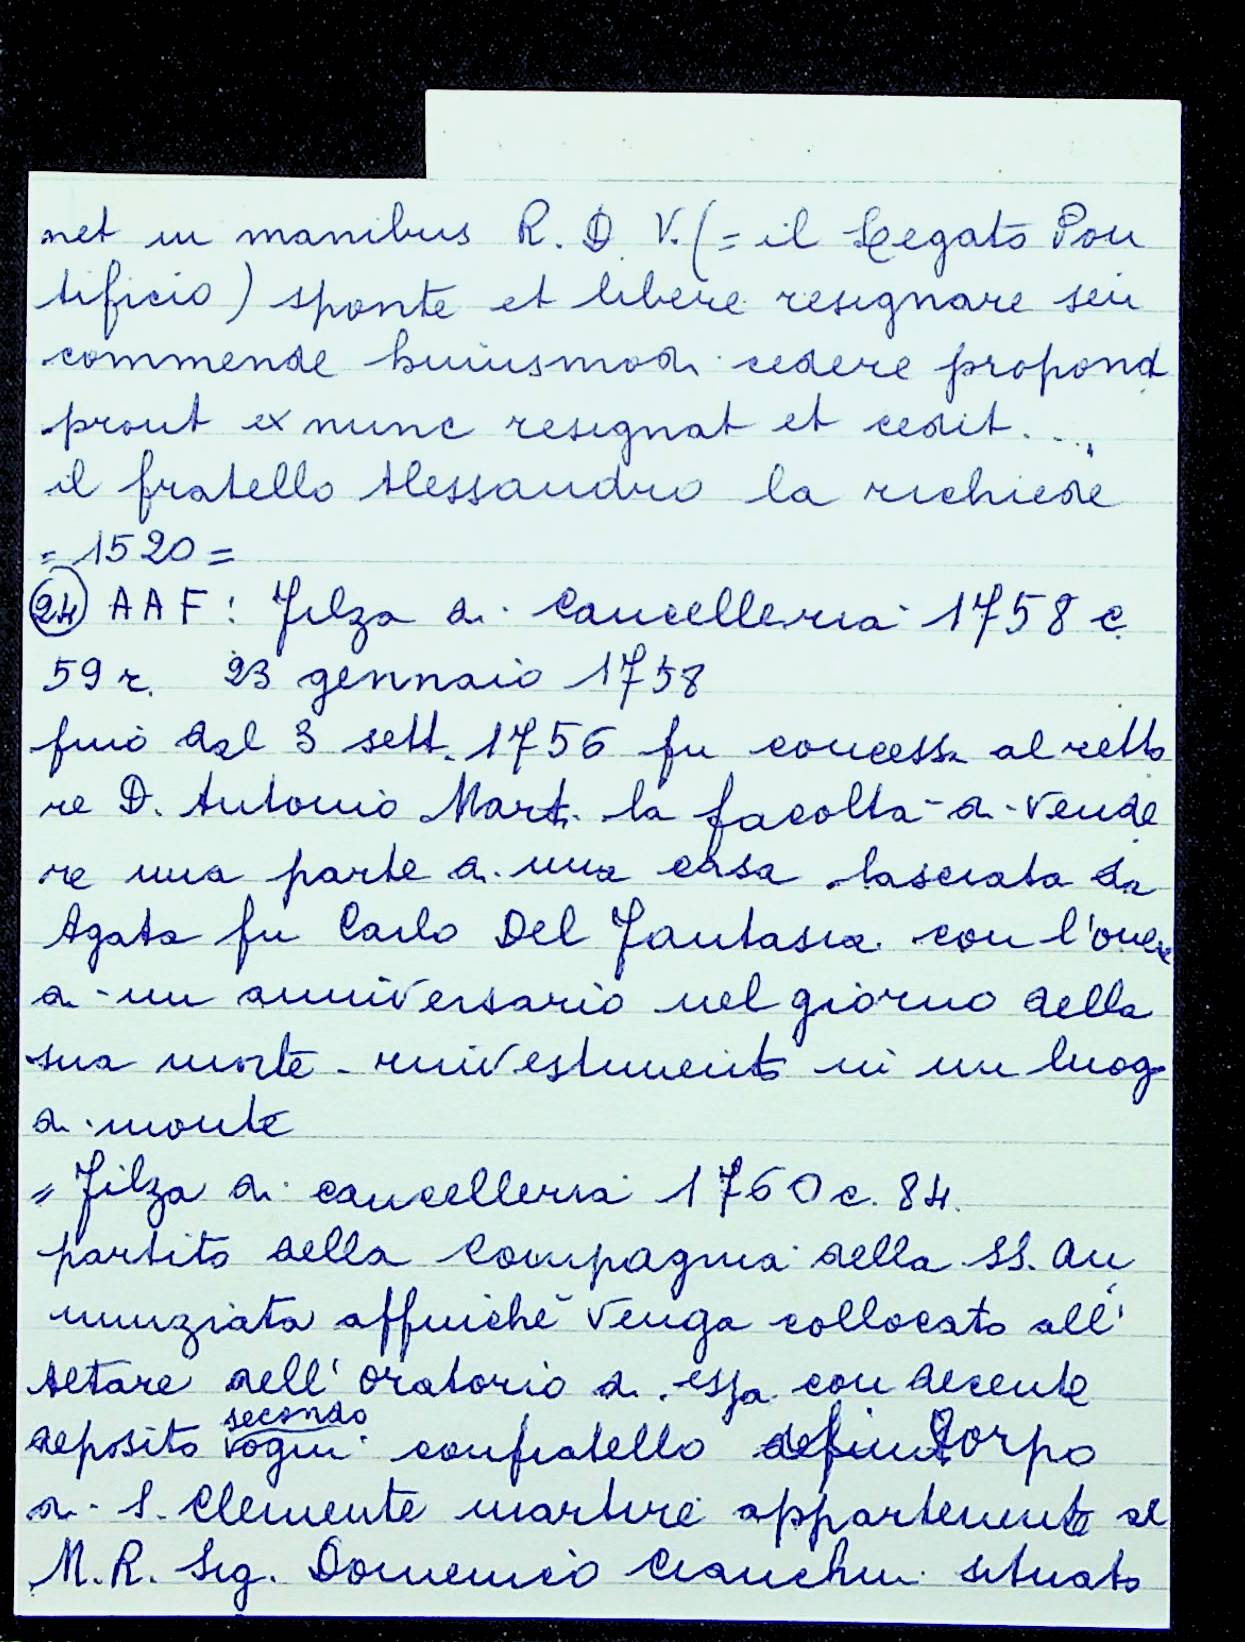 net in manibus R. D. V. (= il Legato Pon
tificio) sponte et libere resignare seu
commende huiusmodi cedere propond
prout ex nunc resignat et cedit....
il fratello Alessandro la richiede
= 1520 =
24 AAF: Filza di Cancelleria 1758 c
59 r. 23 gennaio 1758
fino dal 3 sett. 1756 fu concessa al retto
re D. Antonio Mart. la facoltà di vende
re una parte di una casa lasciata da
Agata fu Carlo Del Fantasia con l'onere
di un anniversario nel giorno della
sua morte - rinvestimento in un luogo
di monte
= Filza di cancelleria 1760 c. 84.
partito della Compagnia della SS. An
nunziata affinché venga collocato all'
Altare dell'oratorio di essa con decente
deposito secondo confratello Corpo
di S. Clemente martire appartenente al
M. R. Sig. Domenico Cianchini situato